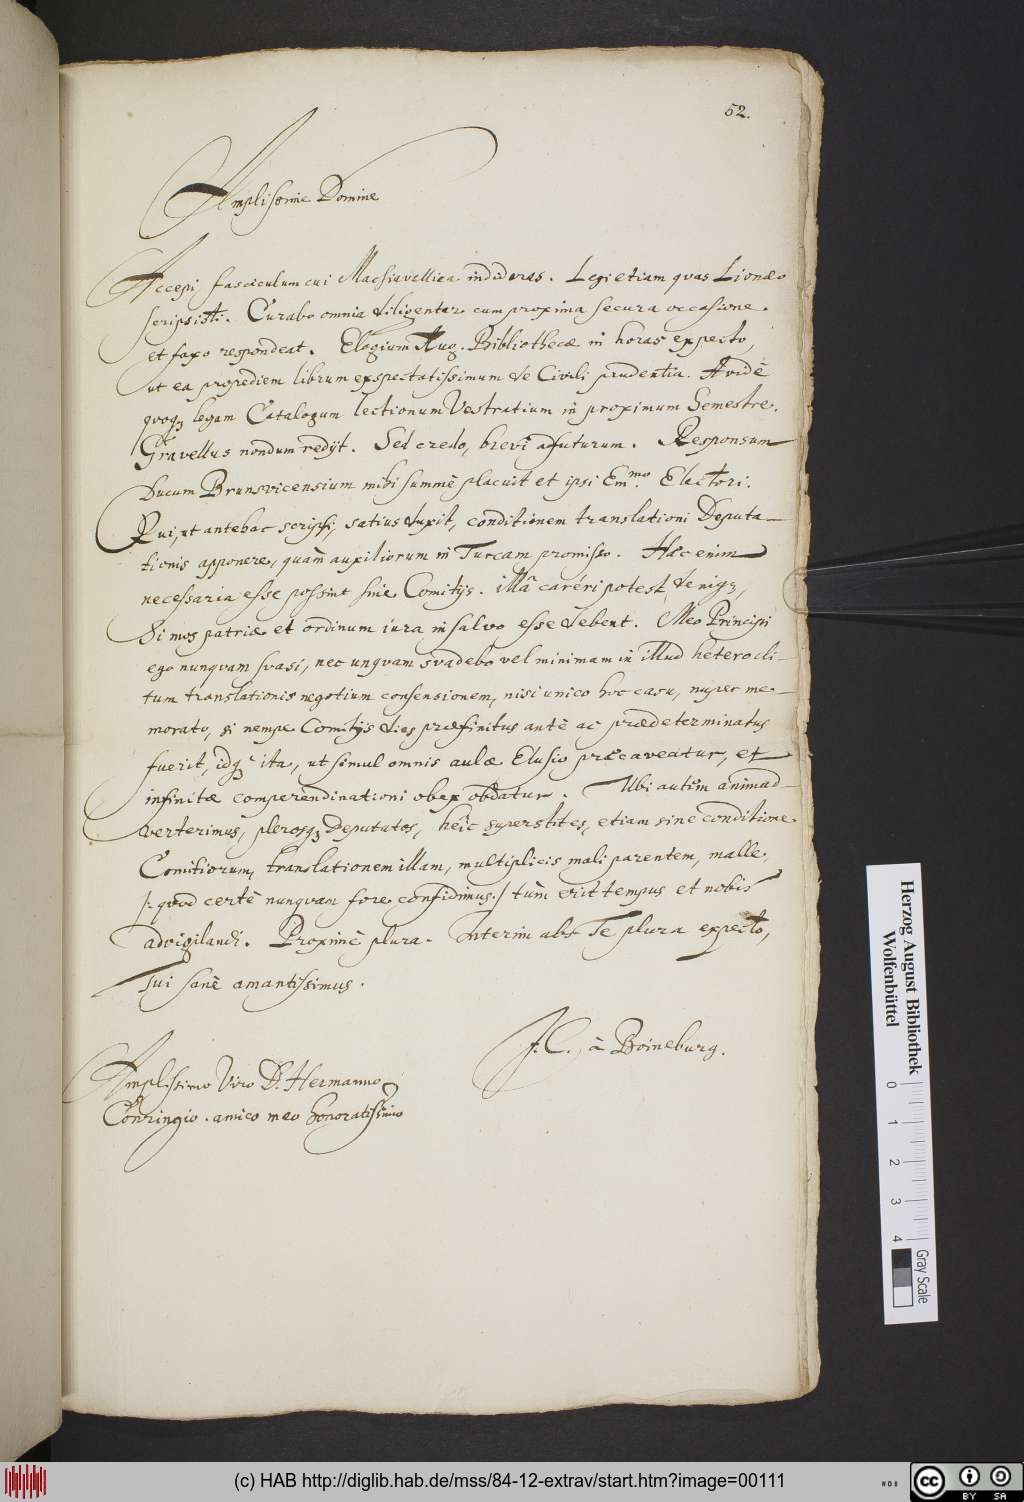 52.
Amplissime Domine
Accepi fasciculum cui Machiavellica indideras. Legi etiam quas Lionæo
scripsisti. Curabo omnia diligenter cum proxima secura occasione.
et faxo respondeat. Elogium Aug. Bibliothecæ in horas expecto,
ut ea propediem librum exspectatissimum de Civili prudentia. Avidè
quoq; legam Catalogum lectionum Vestratium in proximum Semestre.
Gravellus nondum redijt. Sed credo, brevi adfuturum. Responsum
Ducum Brunsvicensium mihi summè placuit et ipsi Em.mo Electori.
Qui, ut antehac scripsi, satius duxit, conditionem translationi Deputa-
tionis apponere, quàm auxiliorum in Turcam promisso. Hæc enim
necessaria esse possint sine Comitijs. illâ careri potest, deniq;,
Si mos patriæ et ordinum iura in salvo esse debent. Meo Principi
ego nunquam svasi, nec unquam svadebo vel minimam in illud heterocli-
tum translationis negotium consensionem, nisi unico hoc casu, nuper me-
morato, si nempe Comitijs dies præfinitus antè ac prædeterminatus
fuerit, idq; ita, ut simul omnis aulæ Elusio præcaveatur, et
infinitæ comperendinationi obex obdatur. Ubi autem animad-
verterimus, plerosq; Deputatos, heic superstites, etiam sine conditione
Comitiorum, translationem illam, multiplicis mali parentem, malle,
/: quod certè nunquam fore confidimus :/ tum erit tempus et nobis
advigilandi. Proximè plura. Interim abs Te plura expecto,
Tui sanè amantissimus.
J. C. à Boineburg.
Amplissimo Viro D. Hermanno
Conringio. amico meo honoratissimo
Herzog August Bibliothek
Wolfenbüttel
0 1 2 3 4
Gray Scale
(c) HAB http://diglib.hab.de/mss/84-12-extrav/start.htm?image=00111
cc BY SA